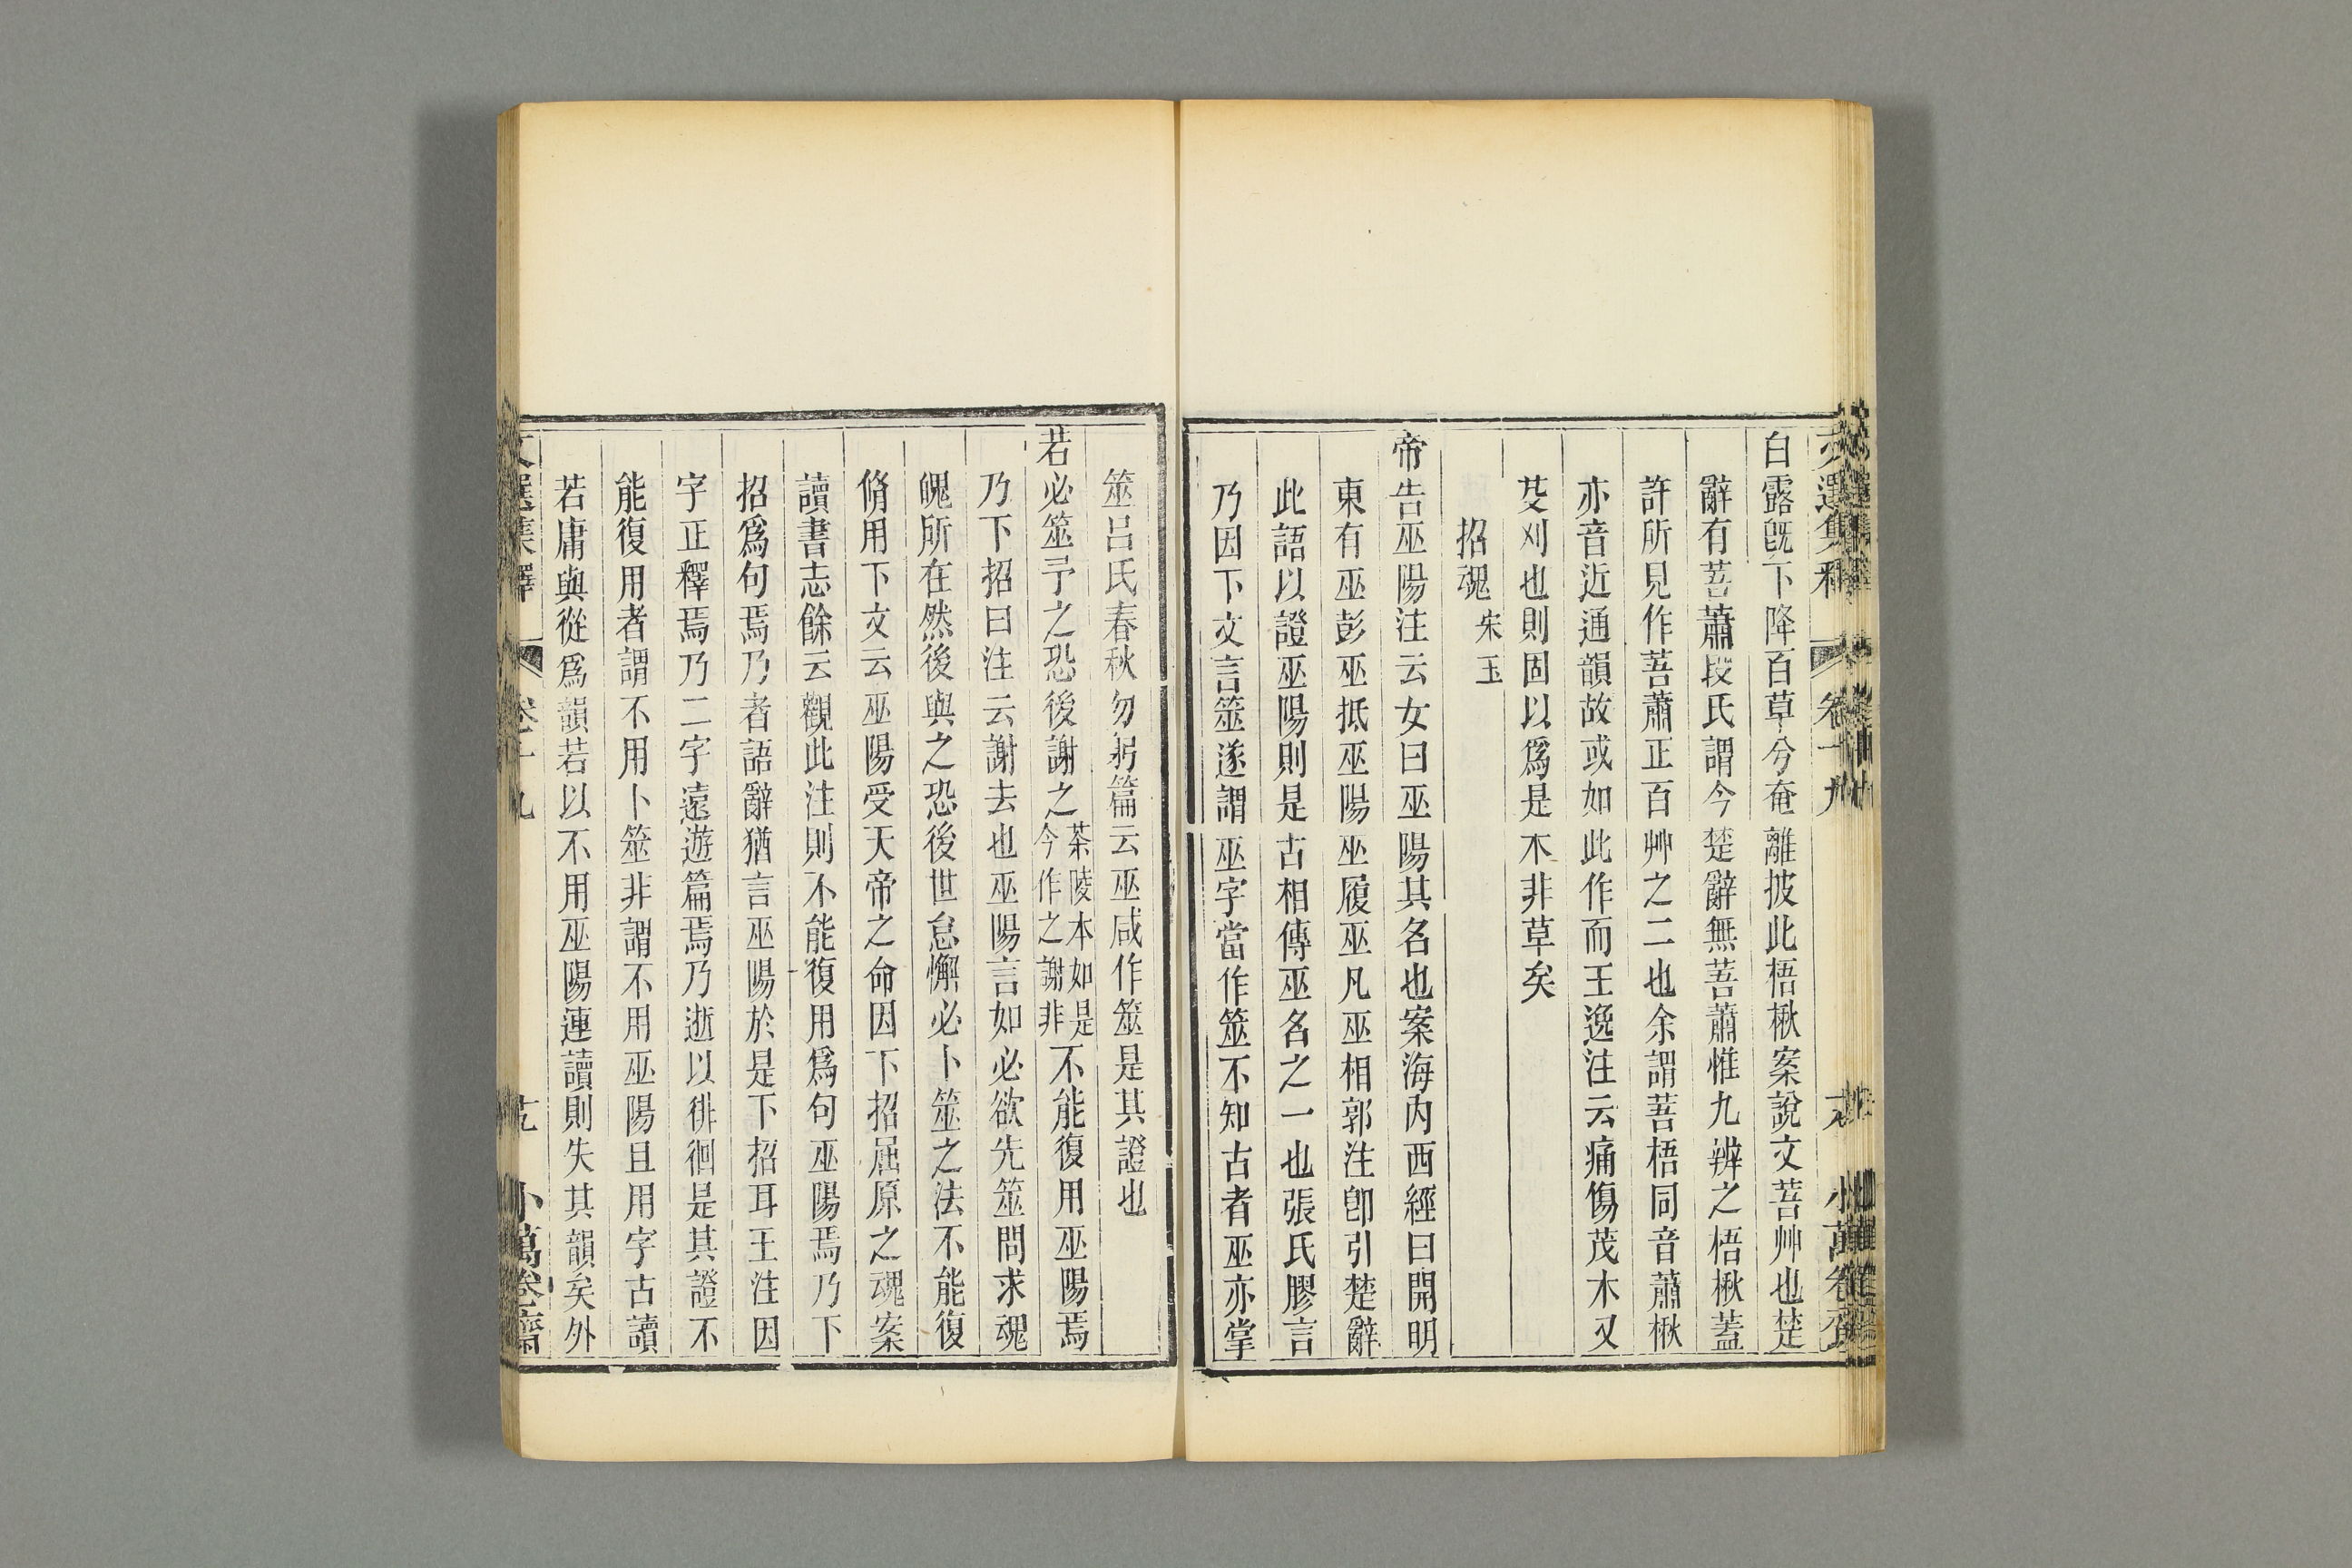 白露旣下降百草兮奄離披此梧楸案說文菩艸也楚
辭有菩蕭段氏謂今楚辭無菩蕭惟九辨之梧楸蓋
許所見作菩蕭正百艸之二也余謂菩梧同音蕭楸
亦音近通韻故或如此作而王逸注云痛傷茂木又
芟刈也則固以爲是木非草矣
招魂宋玉
帝告巫陽注云女曰巫陽其名也案海內西經曰開明
東有巫彭巫抵巫陽巫履巫凡巫相郭注卽引楚辭
此語以證巫陽則是古相傳巫名之一也張氏膠言
乃因下文言筮遂謂巫字當作筮不知古者巫亦掌
筮呂氏春秋勿躬篇云巫咸作筮是其證也
若必筮予之恐後謝之茶陵本如是今作之謝非不能復用巫陽焉
乃下招曰注云謝去也巫陽言如必欲先筮問求魂
魄所在然後與之恐後世怠懈必卜筮之法不能復
脩用下文云巫陽受天帝之命因下招屈原之魂案
讀書志餘云觀此注則不能復用爲句巫陽焉乃下
招爲句焉乃者語辭猶言巫陽於是下招耳王注因
字正釋焉乃二字遠遊篇焉乃逝以徘徊是其證不
能復用者謂不用卜筮非謂不用巫陽且用字古讀
若庸與從爲韻若以不用巫陽連讀則失其韻矣外
文選集釋 卷十九 小萬卷齋